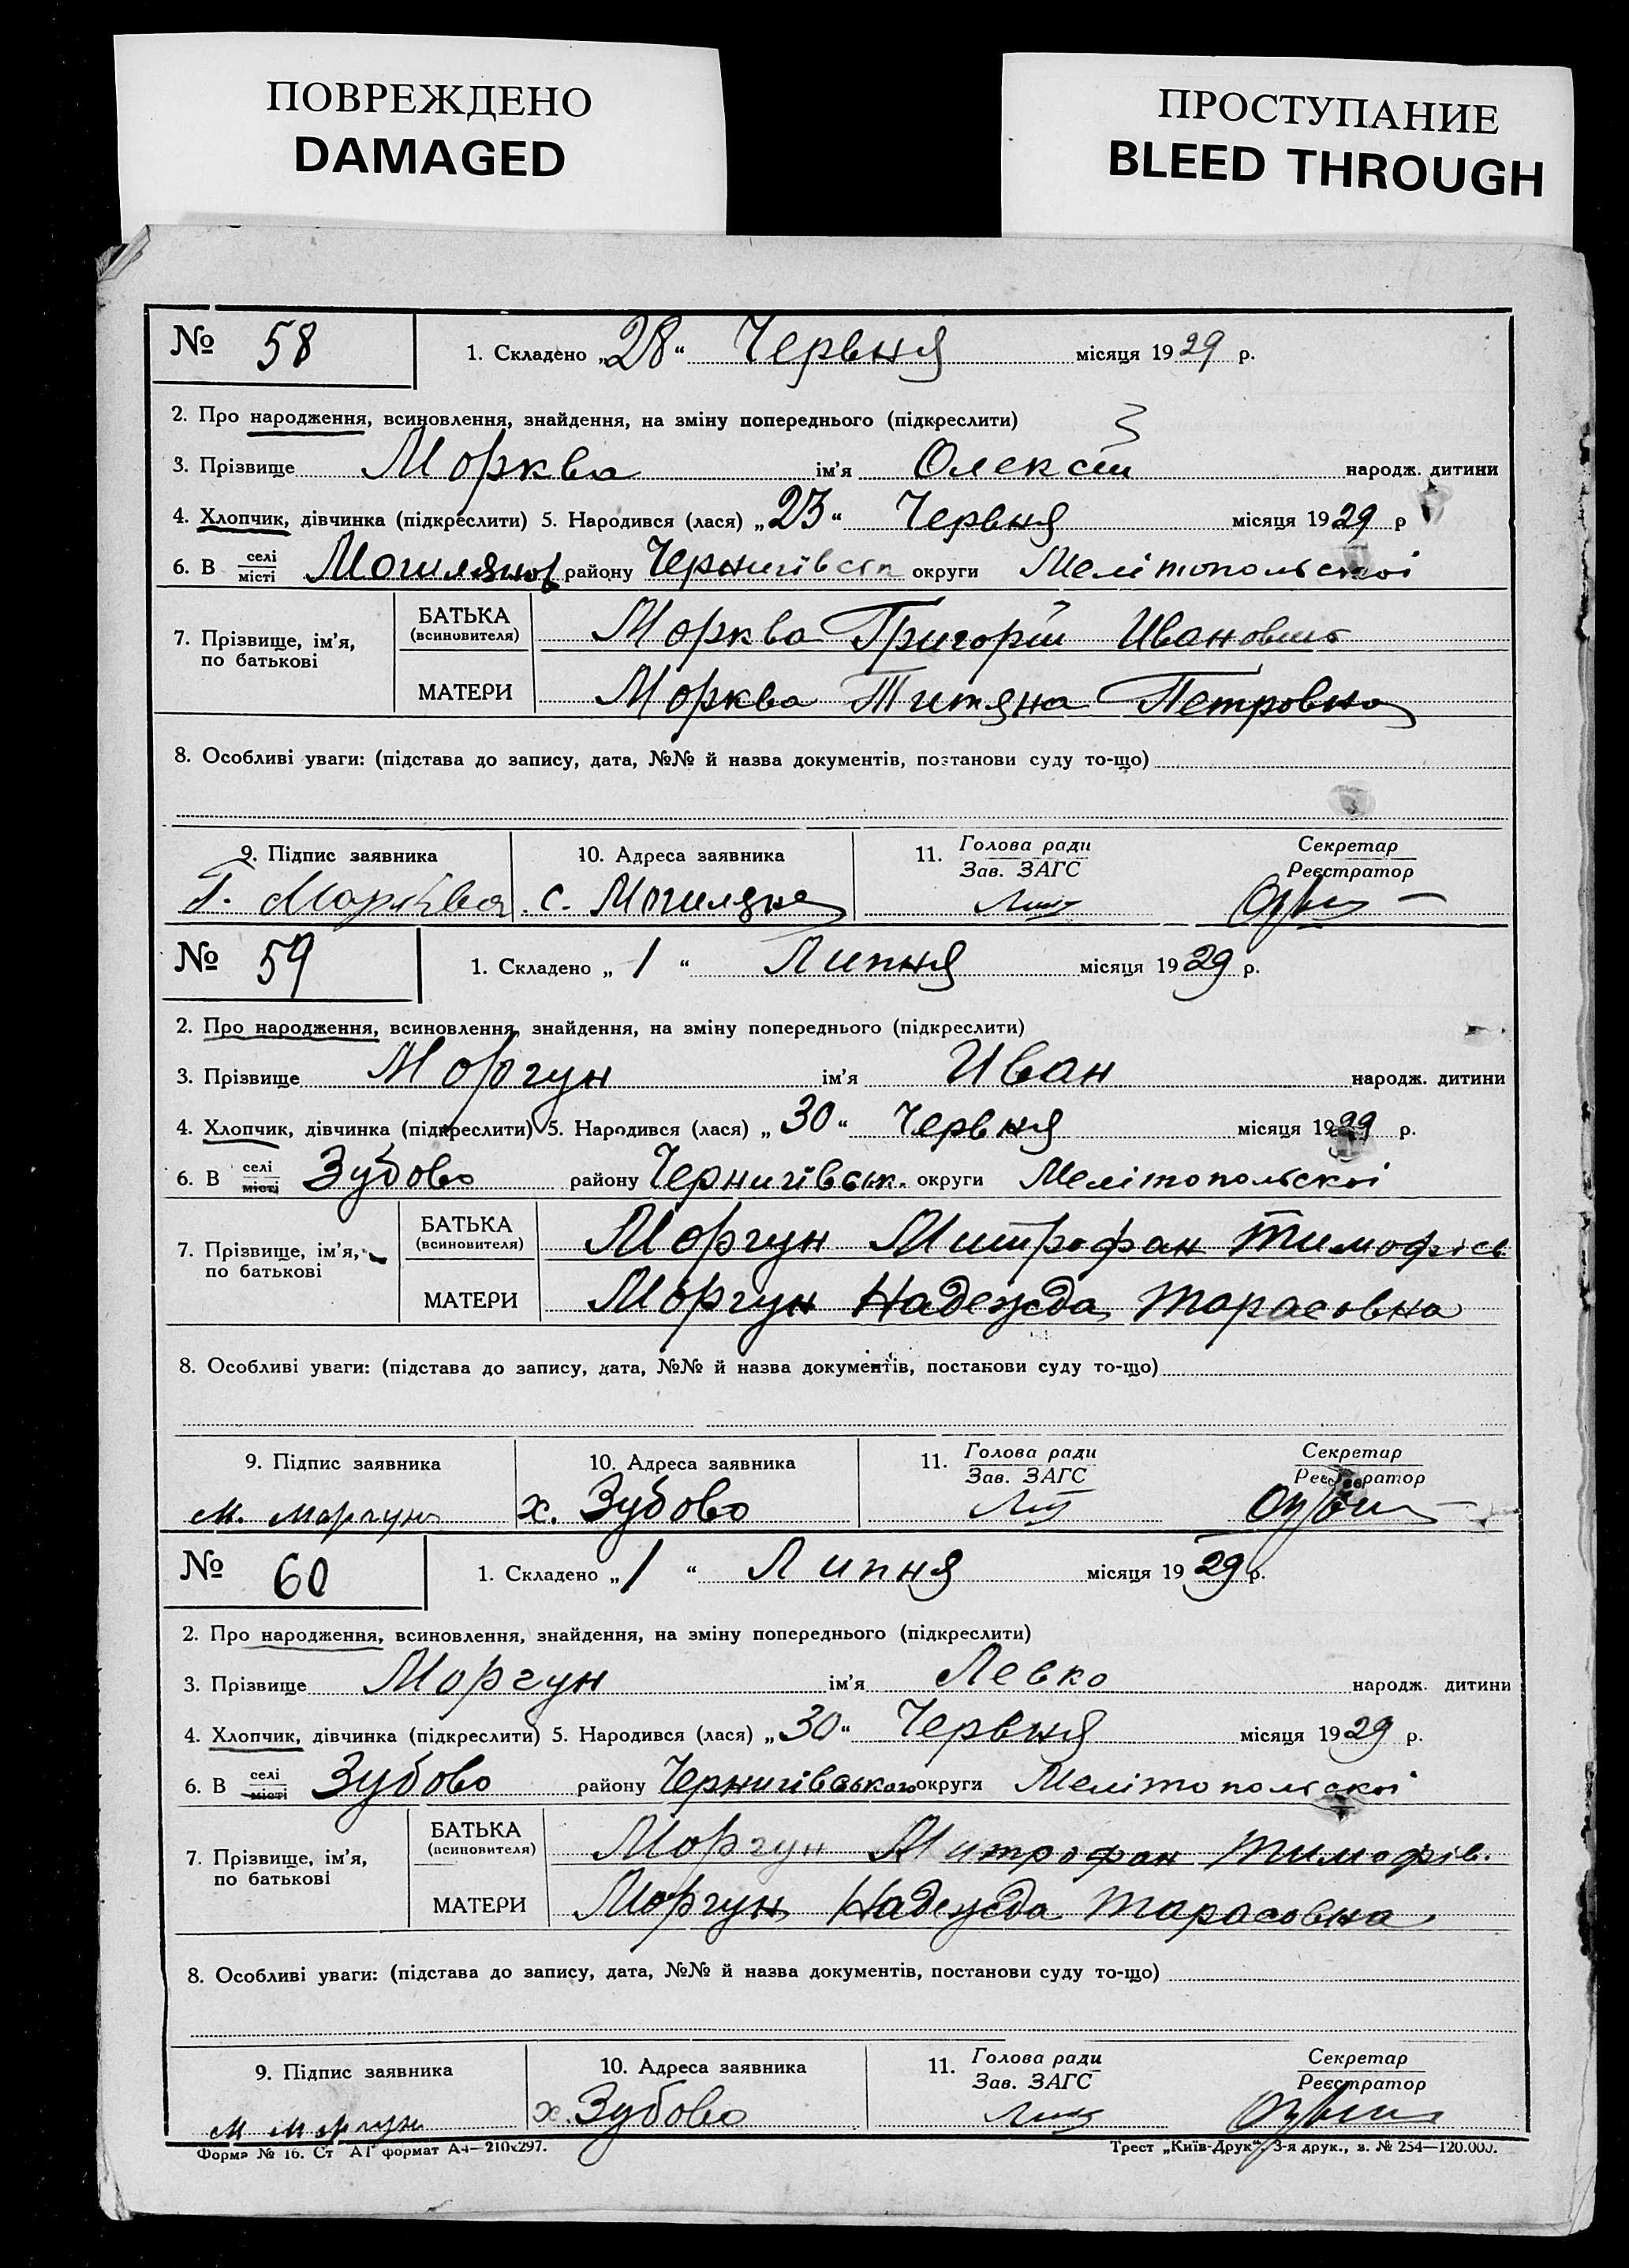 ПОВРЕЖДЕНО
DAMAGED
ПРОСТУПАНИЕ
BLEED THROUGH
№ 58 1. Складено „28“ Червня місяця 1929 р.
2. Про народження, всиновлення, знайдення, на зміну попереднього (підкреслити)
3. Прізвище Морква ім'я Олексій народж. дитини
4. Хлопчик, дівчинка (підкреслити) 5. Народився (лася) „23“ Червня місяця 1929 р
6. В селі місті Могиляном району Чернигівськ округи Мелітопольскоі
7. Прізвище, ім'я, по батькові
БАТЬКА (всиновителя) Морква Григорій Иванович
МАТЕРИ Морква Титяна Петровна
8. Особливі уваги: (підстава до запису, дата, №№ й назва документів, постанови суду то-що)
9. Підпис заявника 10. Адреса заявника 11. Голова ради Зав. ЗАГС Секретар Реєстратор
Г. Морква с. Могиляне
№ 59 1. Складено „1“ Липня місяця 1929 р.
2. Про народження, всиновлення, знайдення, на зміну попереднього (підкреслити)
3. Прізвище Моргун ім'я Иван народж. дитини
4. Хлопчик, дівчинка (підкреслити) 5. Народився (лася) „30“ Червня місяця 1929 р.
6. В селі місті Зубово району Чернигівськ. округи Мелітопольскоі
7. Прізвище, ім'я, по батькові
БАТЬКА (всиновителя) Моргун Митрофан Тимофієв
МАТЕРИ Моргун Надежда Тарасовна
8. Особливі уваги: (підстава до запису, дата, №№ й назва документів, постанови суду то-що)
9. Підпис заявника 10. Адреса заявника 11. Голова ради Зав. ЗАГС Секретар Реєстратор
М. Моргун х. Зубово
№ 60 1. Складено „1“ Липня місяця 1929 р.
2. Про народження, всиновлення, знайдення, на зміну попереднього (підкреслити)
3. Прізвище Моргун ім'я Левко народж. дитини
4. Хлопчик, дівчинка (підкреслити) 5. Народився (лася) „30“ Червня місяця 1929 р.
6. В селі місті Зубово району Чернигівського округи Мелітопольскоі
7. Прізвище, ім'я, по батькові
БАТЬКА (всиновителя) Моргун Митрофан Тимофів.
МАТЕРИ Моргун Надежда Тарасовна
8. Особливі уваги: (підстава до запису, дата, №№ й назва документів, постанови суду то-що)
9. Підпис заявника 10. Адреса заявника 11. Голова ради Зав. ЗАГС Секретар Реєстратор
М Моргун х. Зубово
Форма № 16. Ст АГ формат А4—210х297. Трест „Київ-Друк“, 3-я друк., з. № 254—120.000.